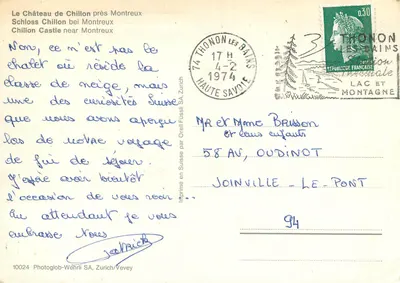 Le Château de Chillon près Montreux
Schloss Chillon bei Montreux
Chillon Castle near Montreux
Non, ce n'est pas le
chalet où réside la
classe de neige, mais
une des curiosités Suisse
que nous avons aperçu
las de notre voyage
de fin de séjour.
J'espère avoir bientôt
l'occasion de vous voir
En attendant je vous
embrasse tous
Patrick
10024 Photoglob-Wehrli SA, Zurich/Vevey
Imprimé en Suisse par Orell Füssli SA Zurich
74 THONON LES BAINS
17 H
4-2
1974
HAUTE SAVOIE
THONON
LES-BAINS
LAC ET
MONTAGNE
0,30
REPUBLIQUE FRANCAISE
Mr et Mme BRISSON
et leurs enfants
58 AV, OUDINOT
JOINVILLE - LE - PONT
94